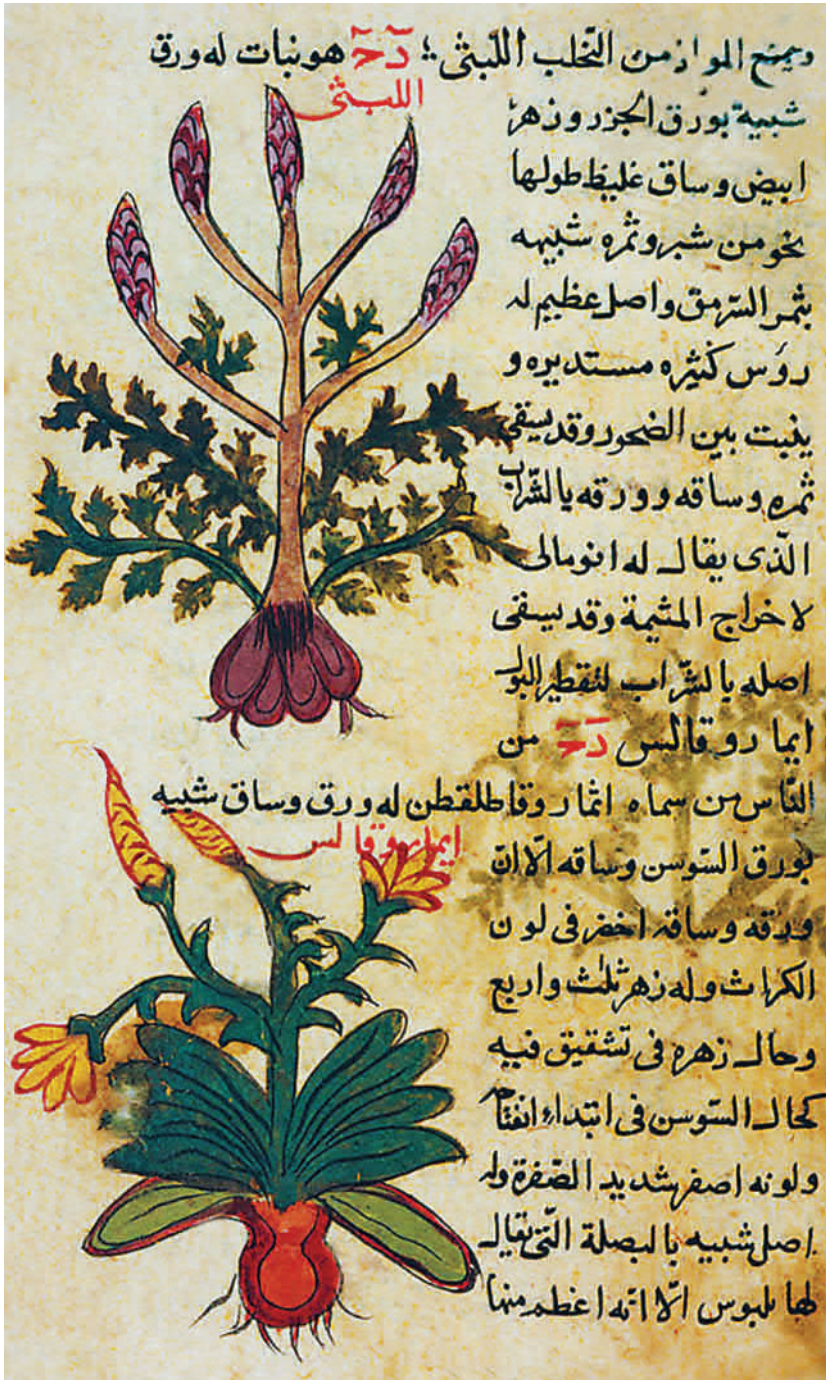 ويمنع المواد من التحلب اللبثى؛ دَحَ هو نبات له ورق
اللبثى
شبيه بورق الجزر وزهر
ابيض وساق غليظ طولها
نحو من شبر وثمره شبيهه
بثمر السرمق واصل عظيم له
رؤس كثيره مستديره و
ينبت بين الصخور وقد يسقى
ثمره وساقه وورقه بالشّراب
الذّى يقال له انومالى
لاخراج المشيمة وقد يسقى
اصله بالشّراب لتقطير البول
ايما روقالس دَحَ من
النّاس من سماه انما روقاطلقطن له ورق وساق شبيه
ايما روقالس
بورق السّوسن وساقه الّا انّ
ورقه وساقه اخضر فى لون
الكراث وله زهر ثلث واربع
وحال زهره فى تشقيق فيه
كحال السّوسن فى ابتداء انفتاح
ولونه اصفر شديد الصّفرة وله
اصل شبيه بالبصلة التّى يقال
لها بلبوس الّا انّه اعظم منها